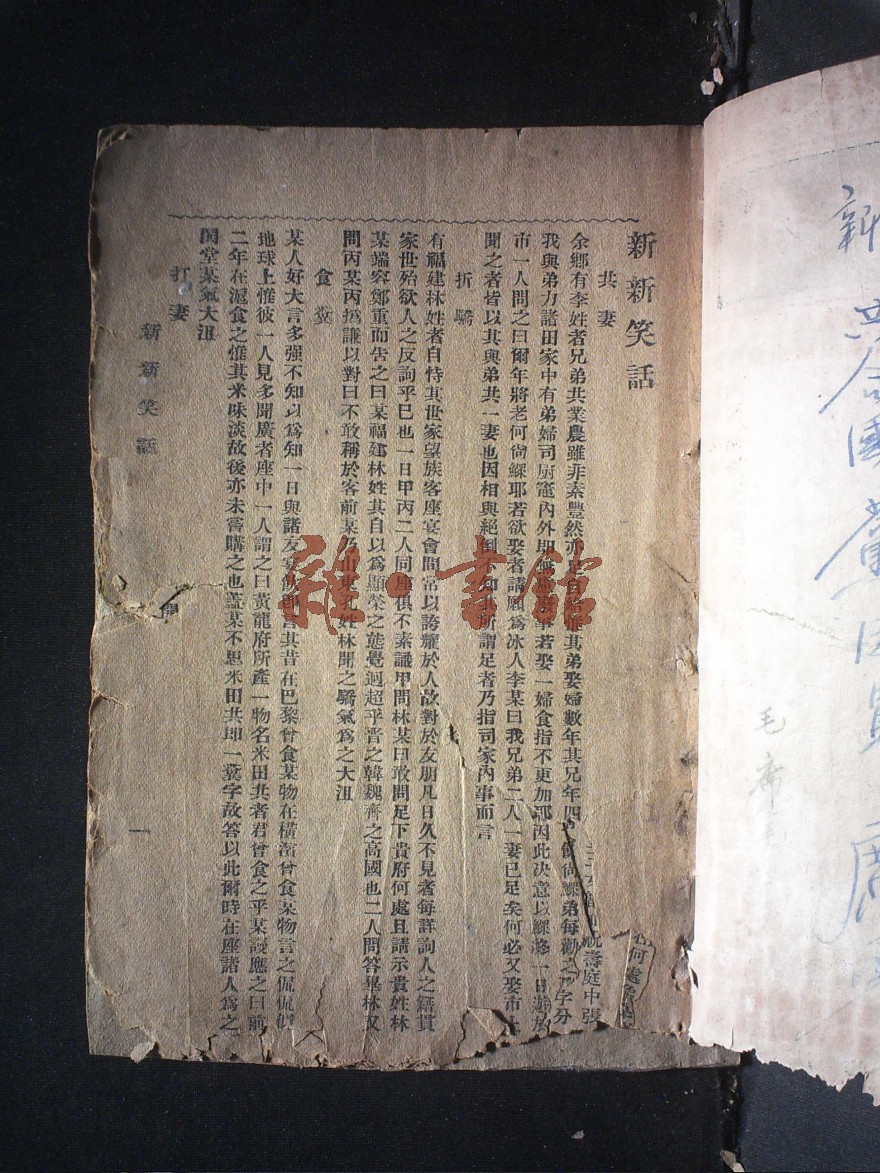 新新笑話
共妻
余鄉有李姓者兄弟共業農雖非素豐然亦足自給惟其弟娶婦數年其兄年四
我與弟力諸田家中有弟婦司廚竈內外即無若娶一婦食指不更加耶因此決意以鰥終一日遊於
市一人問之曰爾年將老何尙鰥耶若欲娶者請願爲冰人李某曰我兄弟二人一妻已足矣何必又娶市
聞之者皆以其與弟共一妻也因相與絕倒不知其所謂足者乃指司家內事而言
折驕
有福建林姓者自恃其世家望族客座宴會間常以誇耀於人故對於友朋凡日久不見者每詳詢人之籍貫
家世殆欲人之反詢乎已也一日甲丙二人同座俱不素識甲問林某曰敢問足下貴府何處且請示貴姓林
某端容鄭重而告之曰某福建林姓其自以爲顯榮之態覺迥超乎晋之韓魏齊之高國也二人問答畢林又
問丙某丙爲謙以對曰不敢稱於客前某乃山東孔姓林聞之驕氣爲之大沮
食糞
某人好大言多強不知以爲知一日與諸友宴飲即言其昔在巴黎曾食某物在橫濱曾食某物言之侃侃
地球上惟彼一人見多聞廣者座中一人謂之曰黃龍府所產一物名米田共者君曾食之乎某謾應之曰前
二年在滬食之惟其米味淡故後亦未嘗購之也蓋某不思米田共即一糞字故答以此爾時在座諸人爲之
閧堂某氣大沮
打妻
新新笑話
一
雜·書館
新
毛